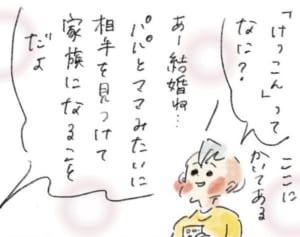 ここに
かいてある
「けっこん」って
なに？
あー結婚ね…
パパとママみたいに
相手を見つけて
家族になることを
だよ